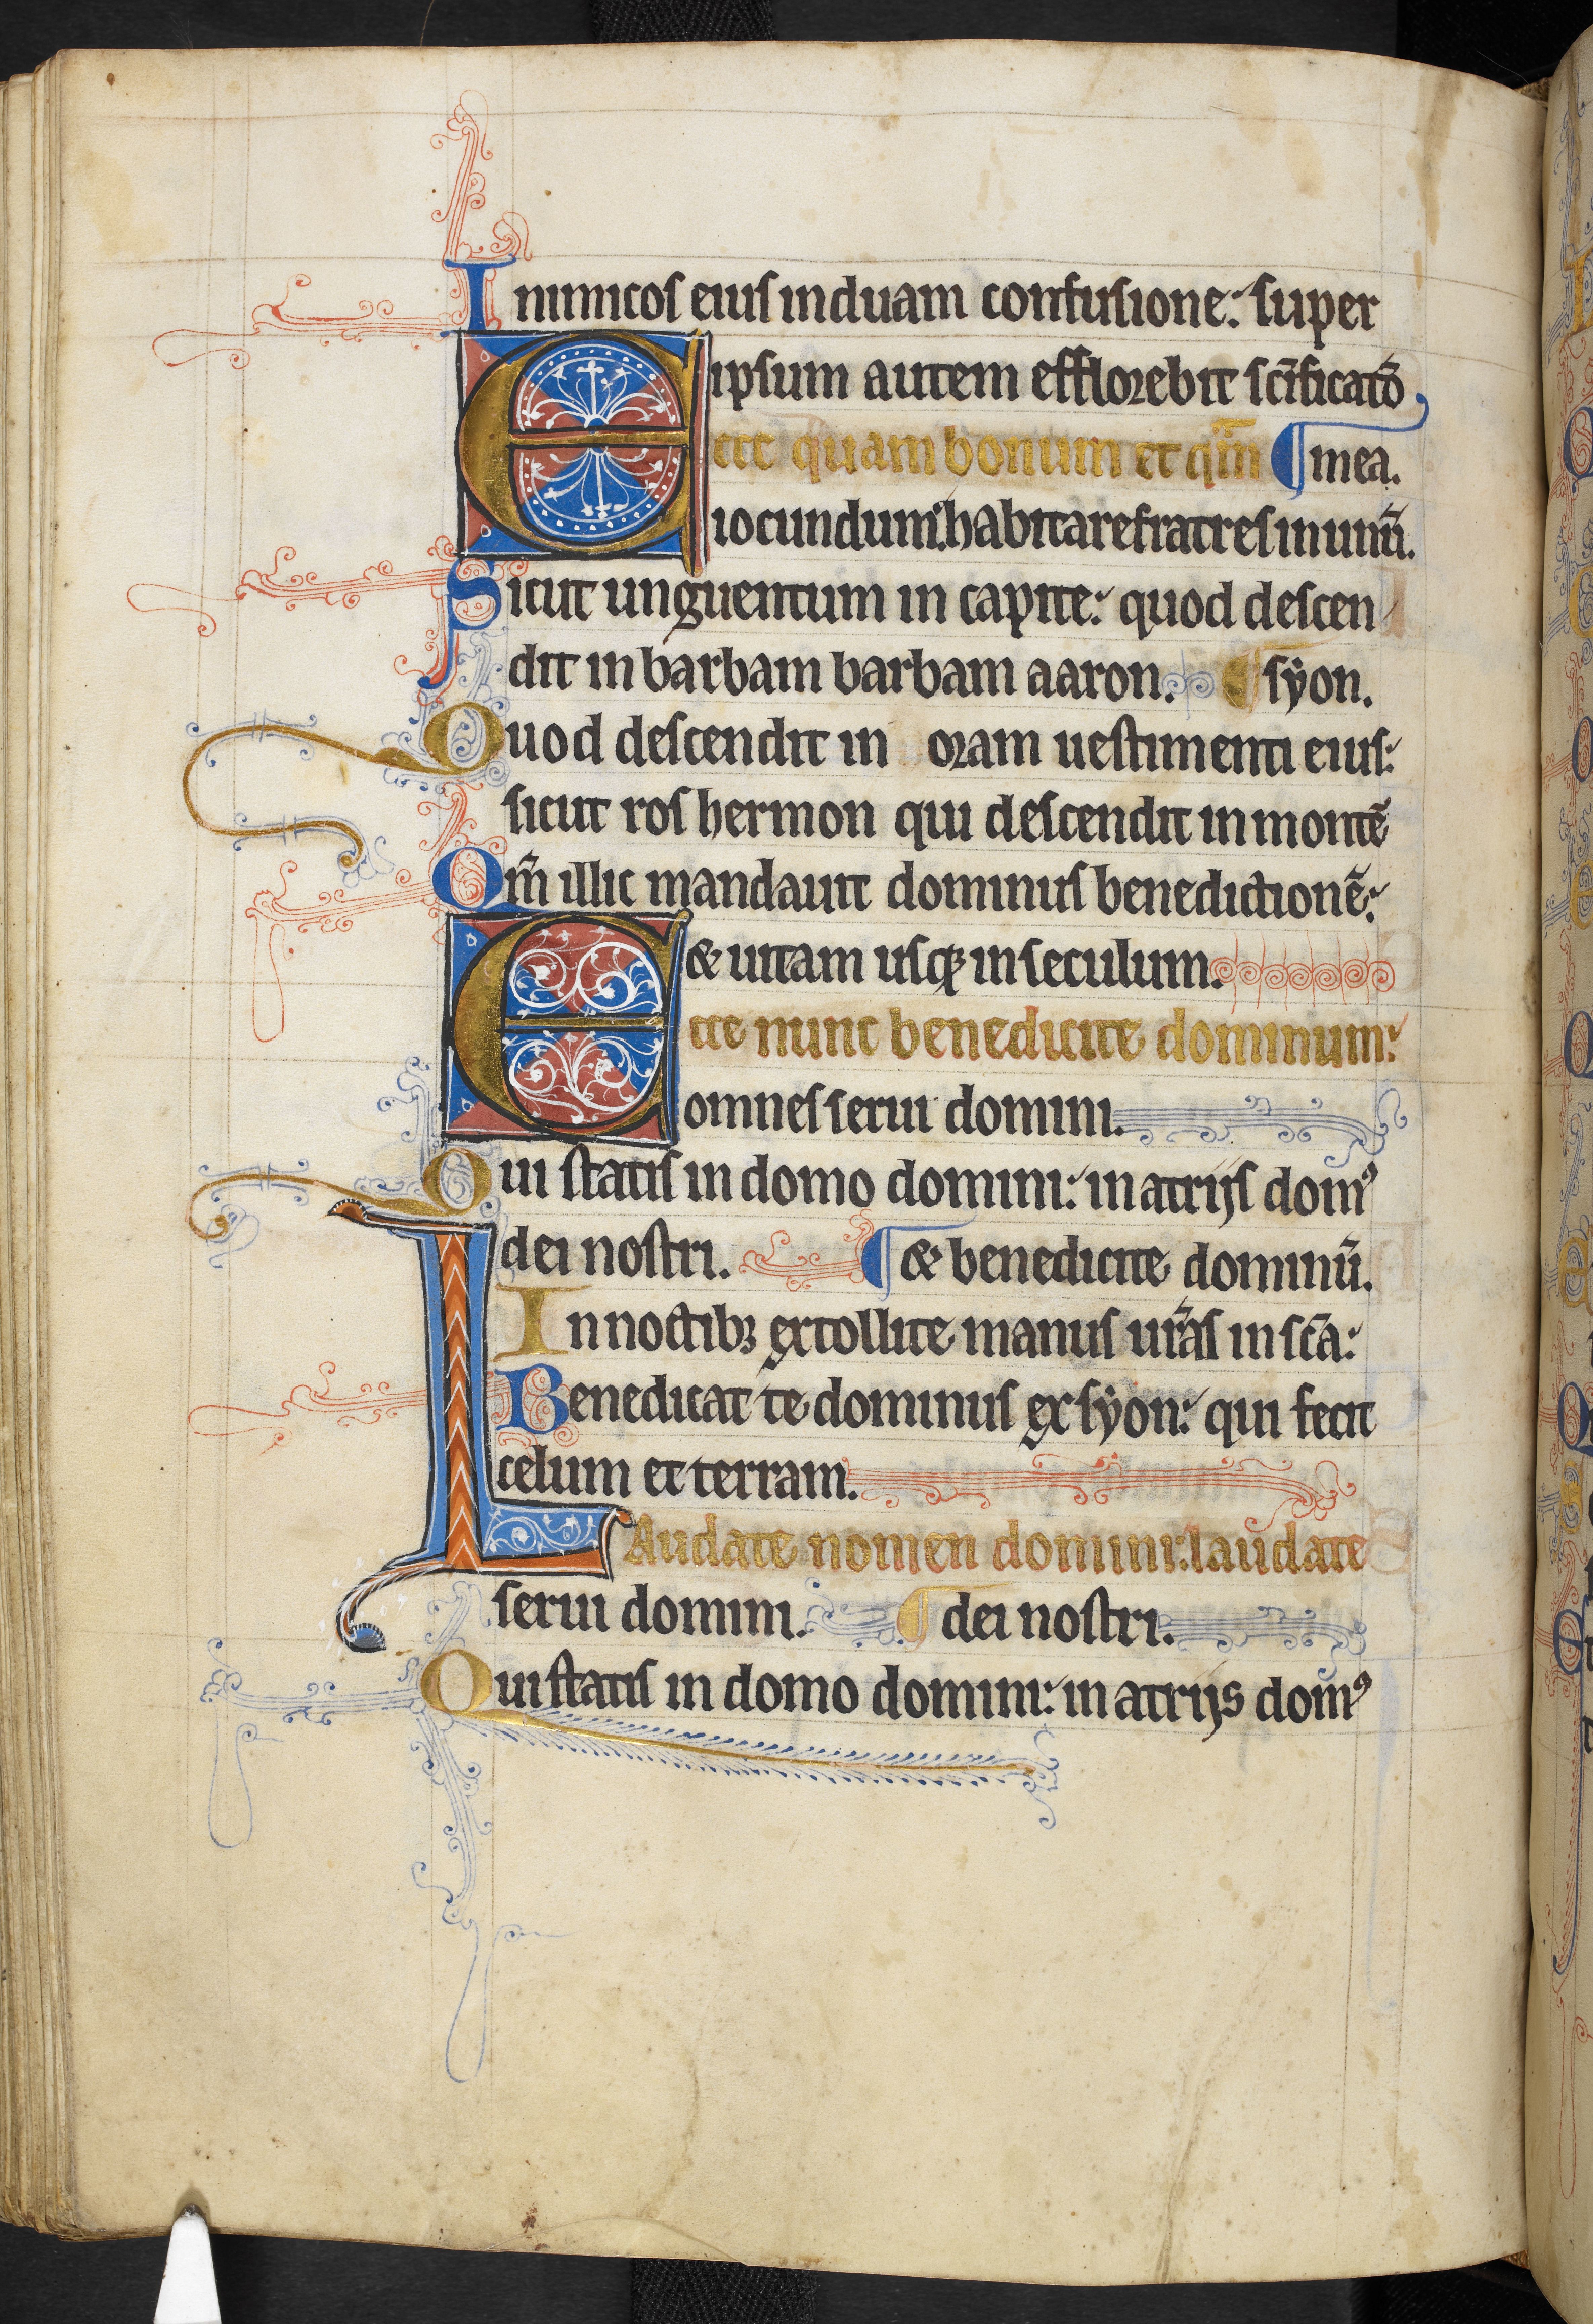 Inimicos eius induam confusione: super
ipsum autem efflorebit scīficatō
Ecce quam bonum et qm̄ ¶ mea.
iocundum: habitare fratres in unū.
Sicut unguentum in capite: quod descen
dit in barbam barbam aaron. ¶ syon.
Quod descendit in oram uestimenti eius:
sicut ros hermon qui descendit in montē
Qm̄ illic mandauit dominus benedictionē:
& uitam usqꝫ in seculum.
Ecce nunc benedicite dominum:
omnes serui domini.
Qui statis in domo domini: in atrijs domꝰ
dei nostri. ¶ & benedicite dominū.
In noctibꝫ extollite manus ur̄as in scā:
Benedicat te dominus ex syon: qui fecit
celum et terram.
LAudate nomen domini: laudate
serui domini. ¶ dei nostri.
Qui statis in domo domini: in atrijs domꝰ